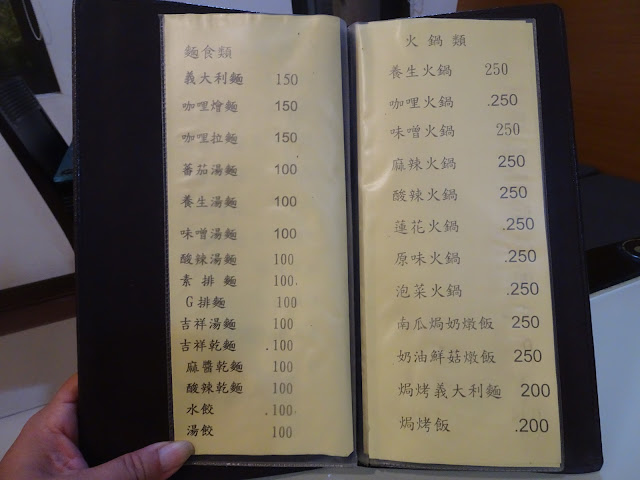 麵食類
義大利麵 150
咖哩燴麵 150
咖哩拉麵 150
蕃茄湯麵 100
養生湯麵 100
味噌湯麵 100
酸辣湯麵 100
素排麵 100
G排麵 100
吉祥湯麵 100
吉祥乾麵 .100
麻醬乾麵 100
酸辣乾麵 100
水餃 .100
湯餃 100
火鍋類
養生火鍋 250
咖哩火鍋 .250
味噌火鍋 250
麻辣火鍋 250
酸辣火鍋 250
蓮花火鍋 .250
原味火鍋 .250
泡菜火鍋 .250
南瓜焗奶燉飯 250
奶油鮮菇燉飯 250
焗烤義大利麵 200
焗烤飯 .200